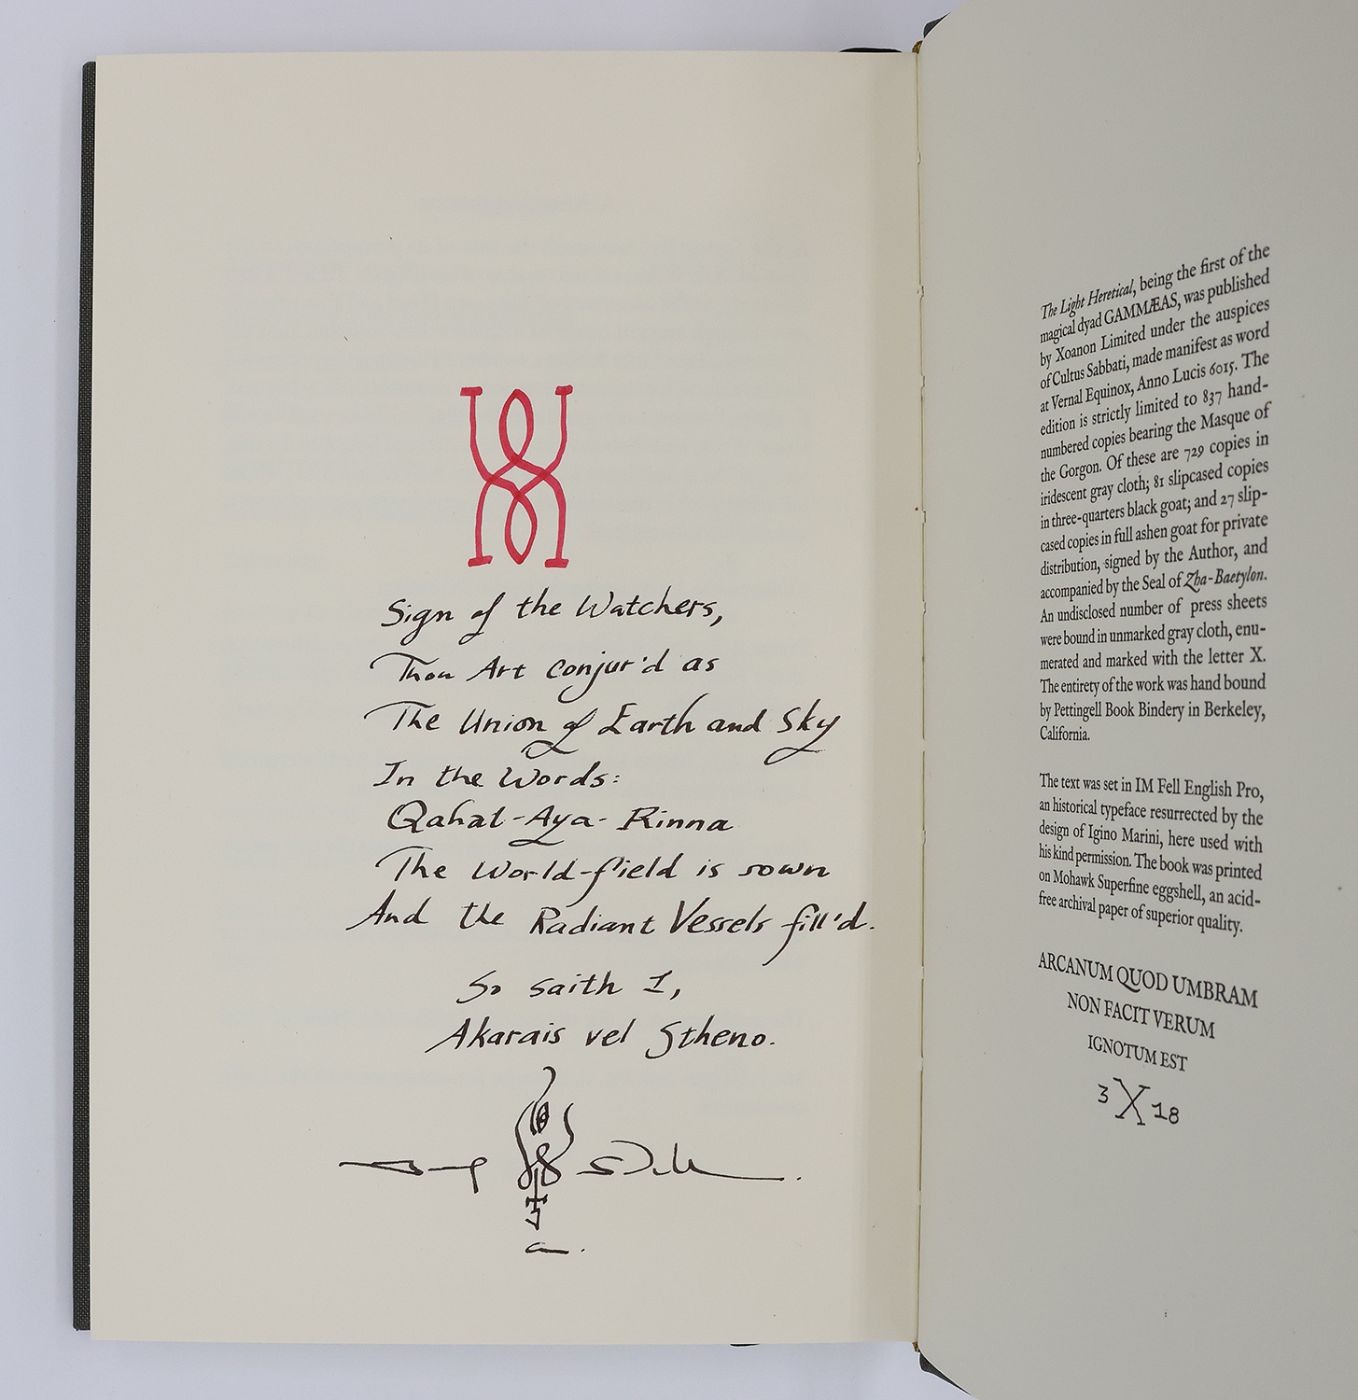 Sign of the Watchers,
Thou Art Conjur'd as
The Union of Earth and Sky
In the Words:
Qahat-Aya-Rinna
The World-field is sown
And the Radiant Vessels fill'd.
So saith I,
Akarais vel Stheno.
The Light Heretical, being the first of the
magical dyad GAMMÆAS, was published
by Xoanon Limited under the auspices
of Cultus Sabbati, made manifest as word
at Vernal Equinox, Anno Lucis 6015. The
edition is strictly limited to 837 hand-
numbered copies bearing the Masque of
the Gorgon. Of these are 729 copies in
iridescent gray cloth; 81 slipcased copies
in three-quarters black goat; and 27 slip-
cased copies in full ashen goat for private
distribution, signed by the Author, and
accompanied by the Seal of Zha-Baetylon.
An undisclosed number of press sheets
were bound in unmarked gray cloth, enu-
merated and marked with the letter X.
The entirety of the work was hand bound
by Pettingell Book Bindery in Berkeley,
California.
The text was set in IM Fell English Pro,
an historical typeface resurrected by the
design of Igino Marini, here used with
his kind permission. The book was printed
on Mohawk Superfine eggshell, an acid-
free archival paper of superior quality.
ARCANUM QUOD UMBRAM
NON FACIT VERUM
IGNOTUM EST
3 X 18